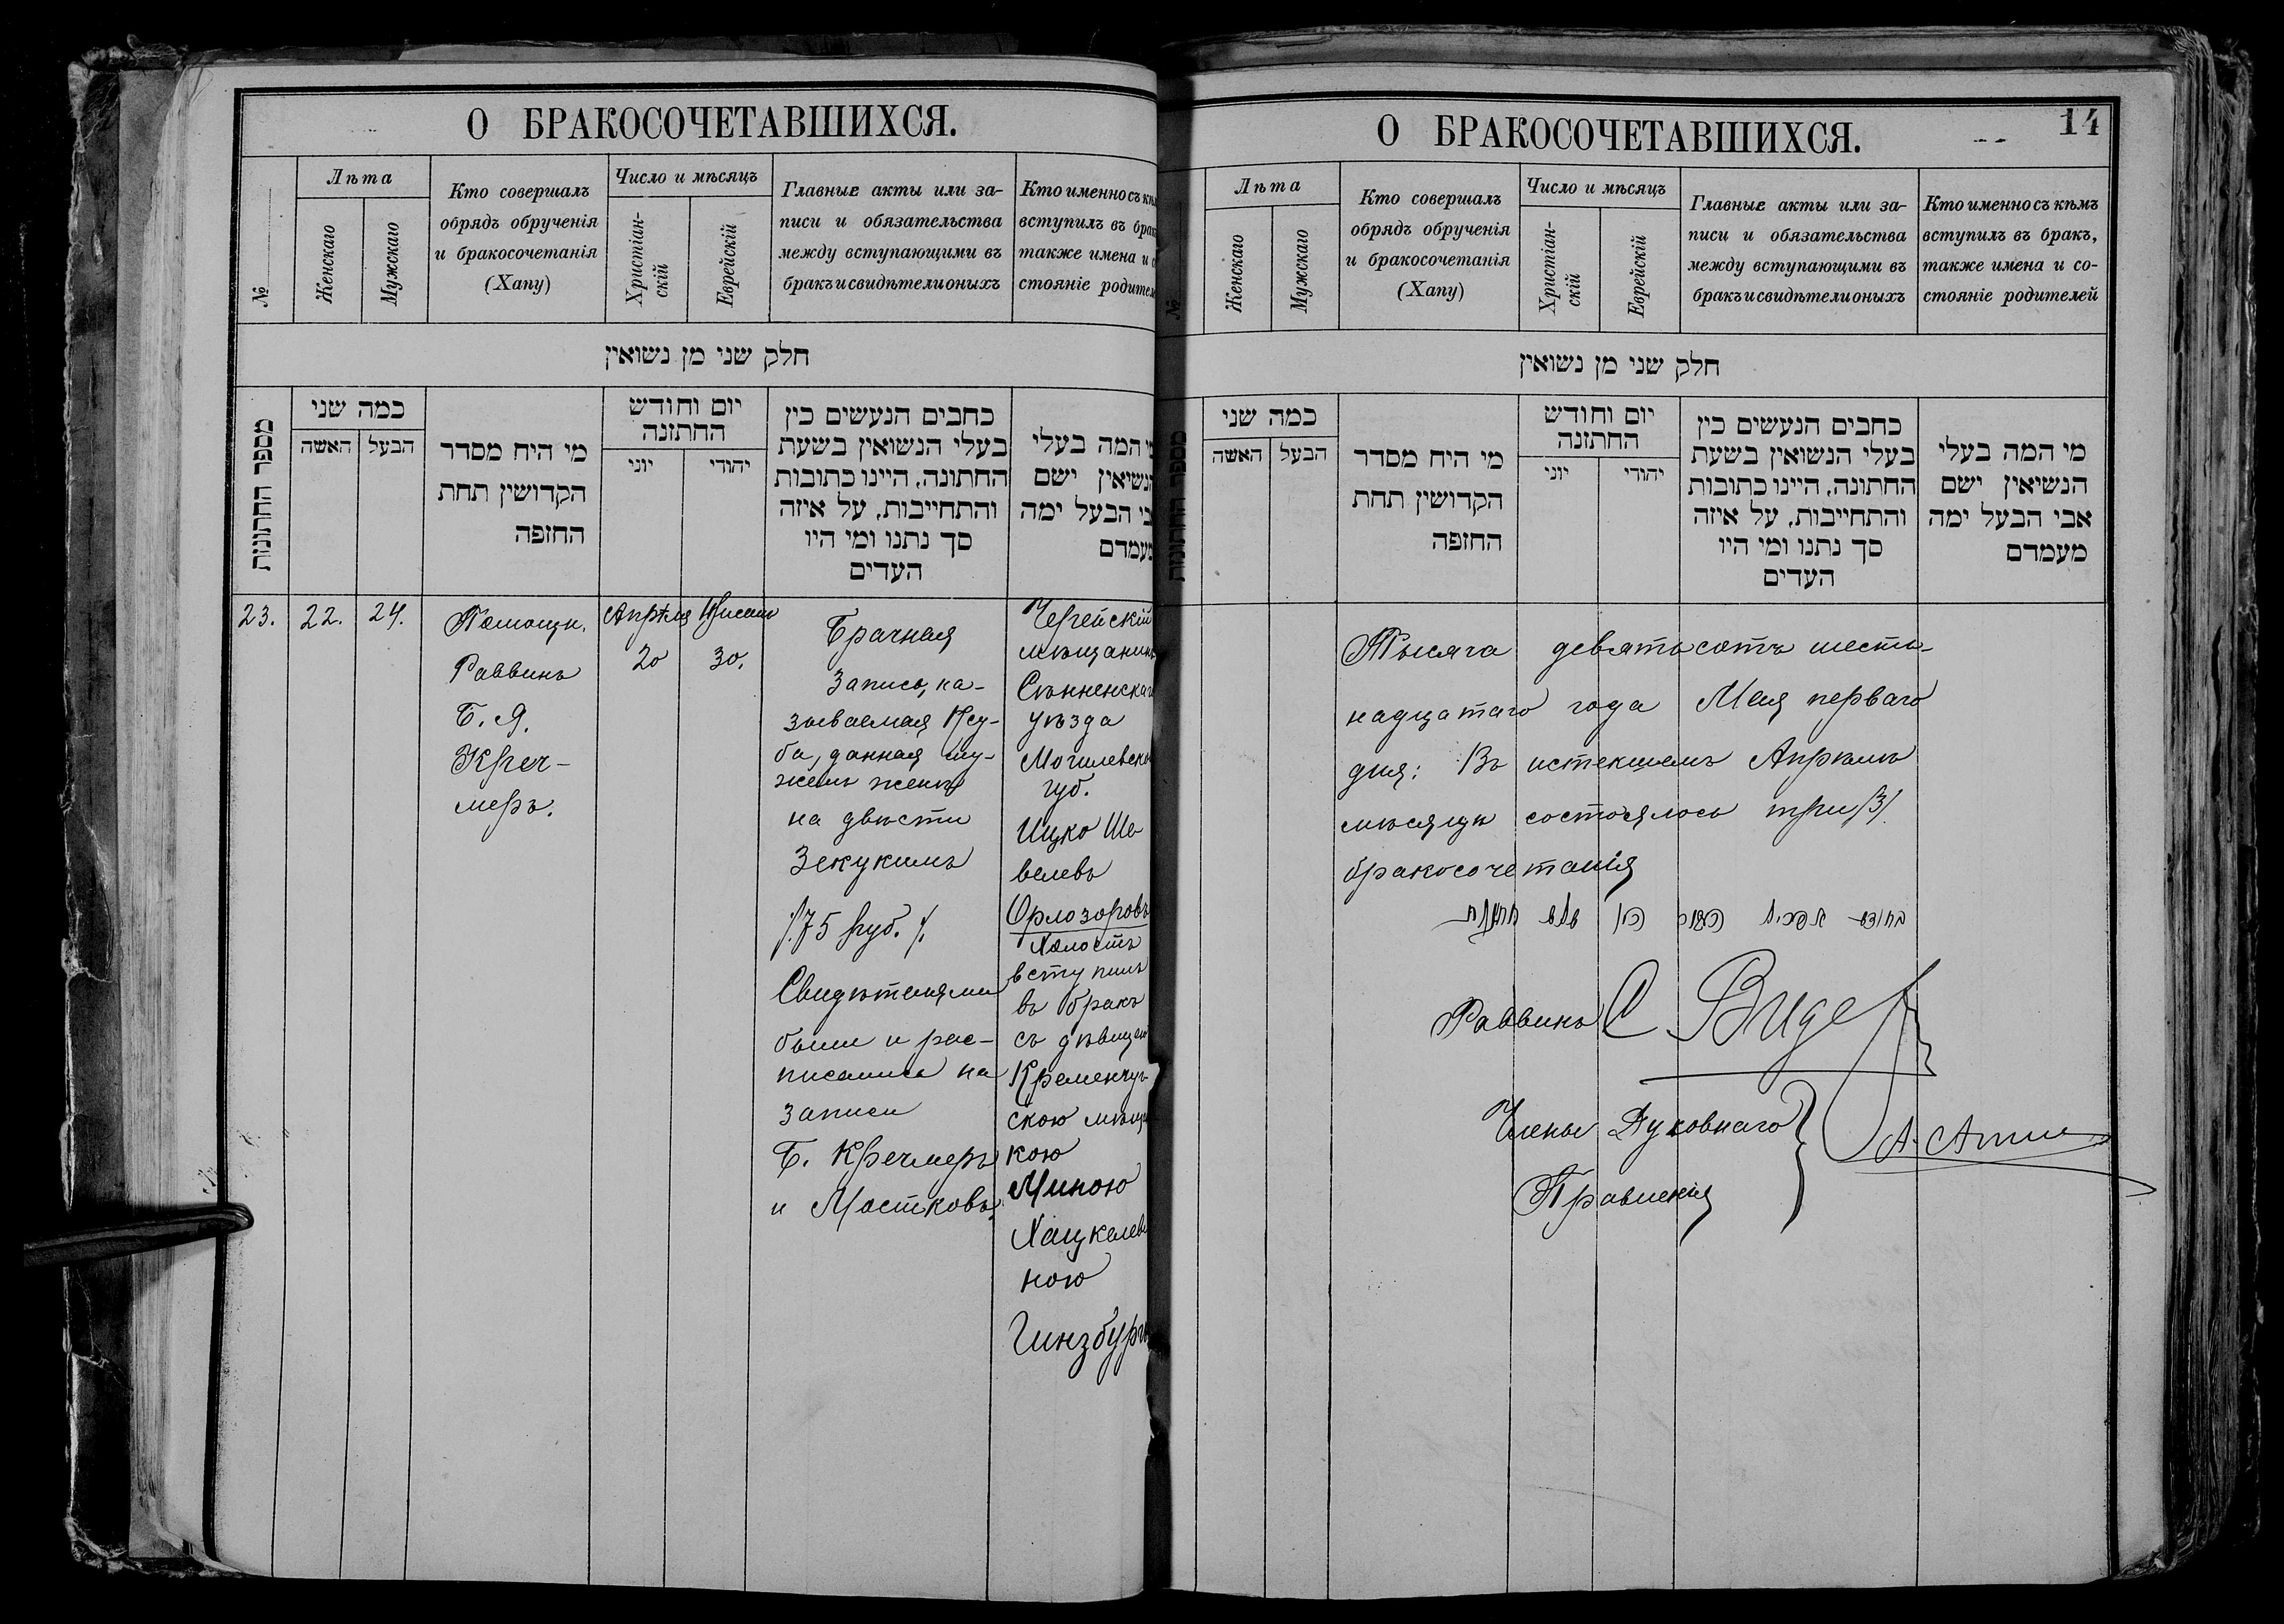 О БРАКОСОЧЕТАВШИХСЯ.
№
Лѣта
Женскаго
Мужскаго
Кто совершалъ
обрядъ обрученія
и бракосочетанія
(Хапу)
Число и мѣсяцъ
Христіан-
скій
Еврейскій
Главные акты или за-
писи и обязательства
между вступающими въ
бракъ и свидѣтели оныхъ
Кто именно съ кѣ
вступилъ въ брак
также имена и с
стояніе родител
חלק שני מן נשואין
מספר החתונות
כמה שני
האשה
הבעל
מי היח מסדר
הקדושין תחת
החזפה
יום וחודש
החתזנה
יוני
יהודי
כחבים הנעשים כין
בעלי הנשואין בשעת
החתונה, היינו כתובות
והתחייבות, על איזה
סך נתנו ומי היו
העדים
י המה בעלי
הנשיאין ישם
בי הבעל ימה
מעמדם
23.
22.
24.
Помощн.
Раввинъ
Б. Я.
Креч-
меръ.
Апрѣля
20
Нисанъ
30.
Брачная
Запись, на-
зываемая Ксу-
ба, данная му-
жемъ женѣ
на двѣсти
Зекукимъ
/.75 руб./.
Свидѣтелями
были и рас-
писались на
записи
Б. Кречмеръ
и Мостковъ.
Черейскій
мѣщанинъ
Сѣнненскаго
уѣзда
Могилевской
губ.
Ицко Ше-
велевъ
Орлозоровъ
Холостъ
вступилъ
въ бракъ
съ дѣвицею
Кременчуг-
скою мѣщан
кою
Миною
Хацкелев
ною
Гинзбургъ
О БРАКОСОЧЕТАВШИХСЯ.
14
№
Лѣта
Женскаго
Мужскаго
Кто совершалъ
обрядъ обрученія
и бракосочетанія
(Хапу)
Число и мѣсяцъ
Христіан-
скій
Еврейскій
Главные акты или за-
писи и обязательства
между вступающими въ
бракъ и свидѣтели оныхъ
Кто именно съ кѣмъ
вступилъ въ бракъ,
также имена и со-
стояніе родителей
חלק שני מן נשואין
מספר החתונות
כמה שני
האשה
הבעל
מי היח מסדר
הקדושין תחת
החזפה
יום וחודש
החתזנה
יוני
יהודי
כחבים הנעשים כין
בעלי הנשואין בשעת
החתונה, היינו כתובות
והתחייבות, על איזה
סך נתנו ומי היו
העדים
מי המה בעלי
הנשיאין ישם
אבי הבעל ימה
מעמדם
Тысяча девятьсотъ шест-
надцатаго года Мая перваго
дня: Въ истекшемъ Апрѣлѣ
мѣсяцѣ состоялось три /3/
бракосочетанія
Раввинъ С Видер
Члены Духовнаго
Правленія